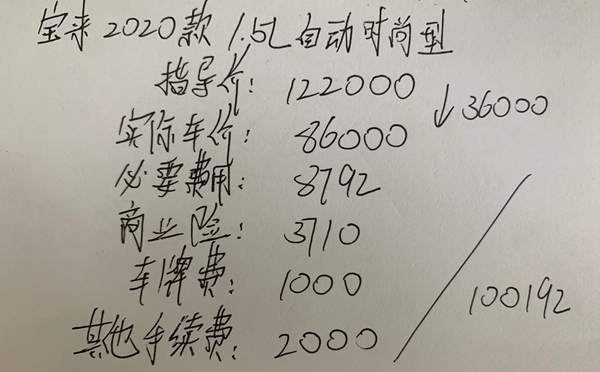 宝来2020款 1.5L自动时尚型
指导价: 122000
↓36000
实际车价: 86000
必要费用: 8792
商业险: 3710
车牌费: 1000
其他手续费: 2000
100192